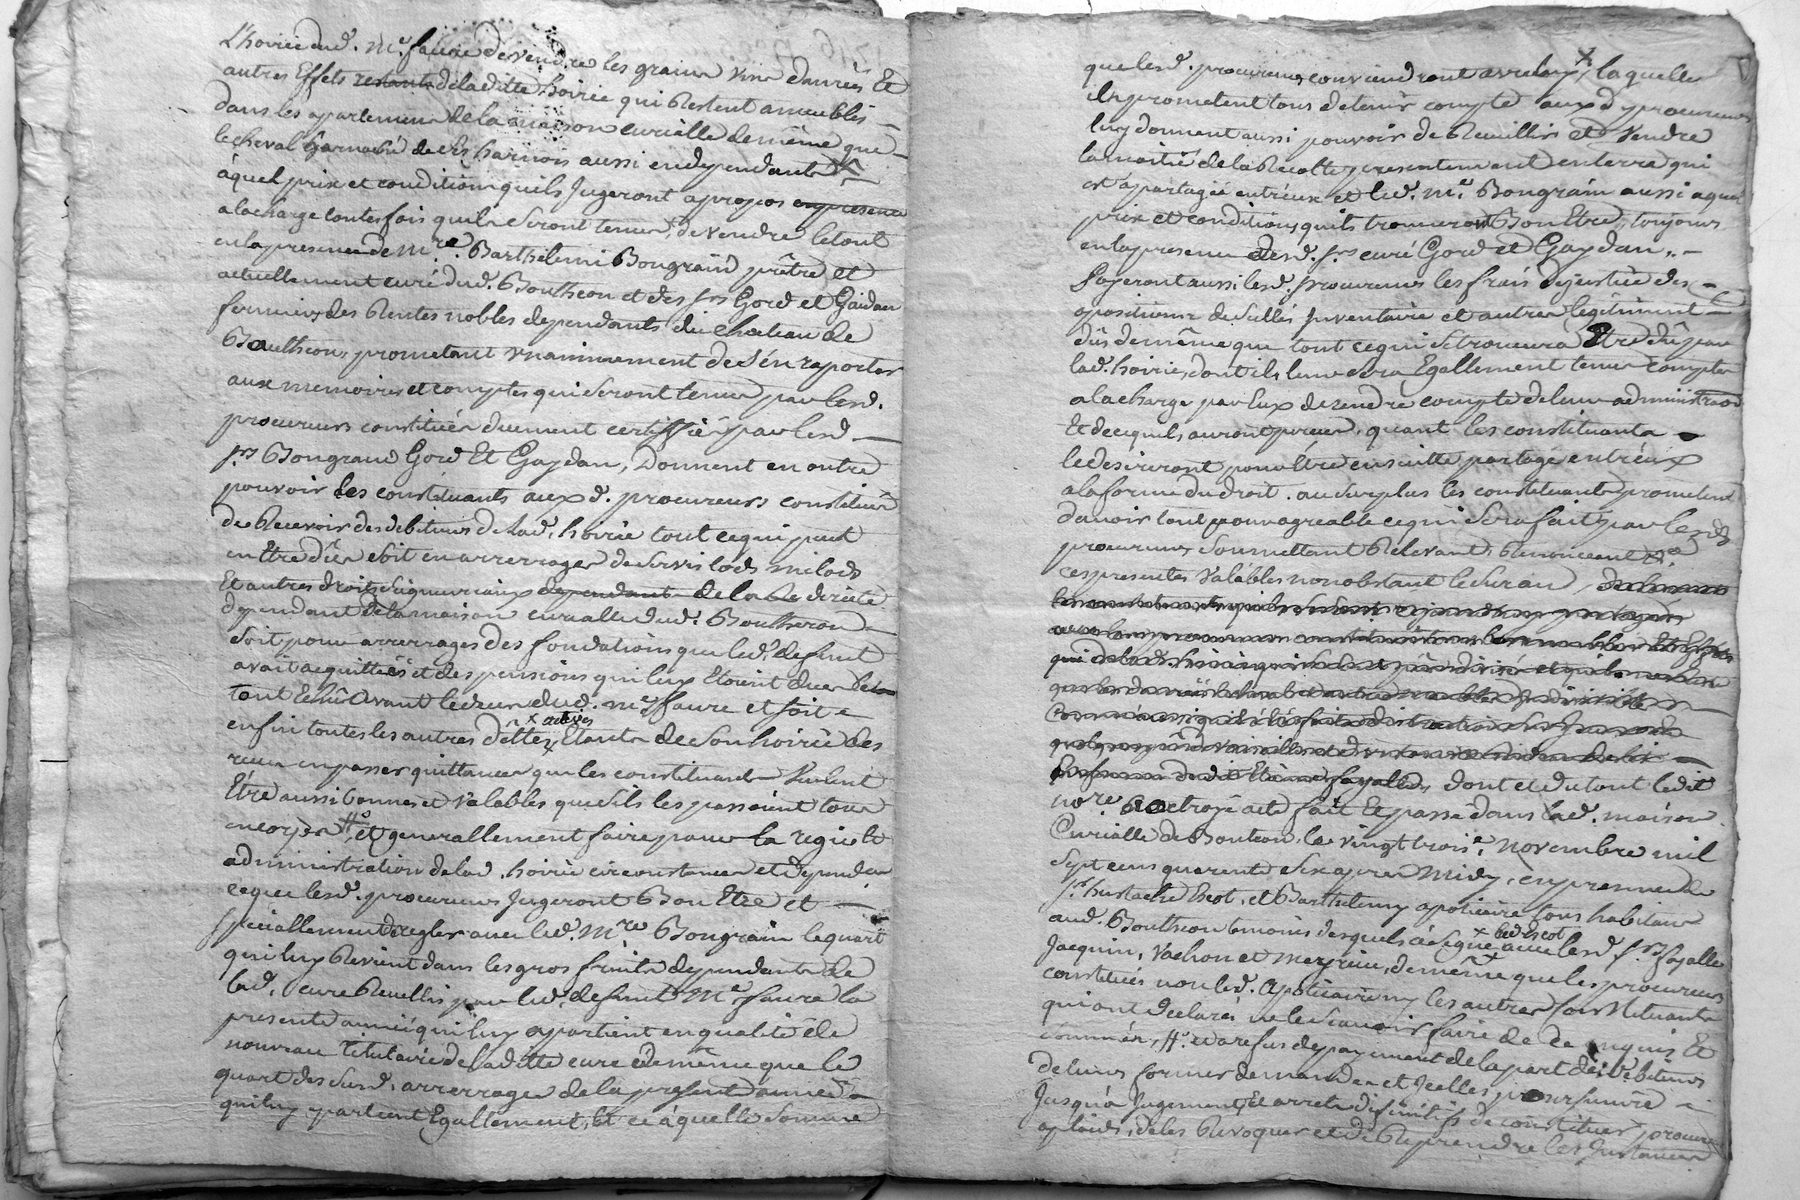 L'hoirie dud. Me. faure de vendre les grains vin danrées Et
autres Effets restants de laditte hoirie qui Restent ameublés
dans les apartemens de la maison curialle de même que
le cheval harnaché de ses harnois aussi en dependants
à quel prix et conditions quils Jugeront apropos en presence
a la charge toutesfois quils seront tenus, de vendre le tout
en la presence de Mre. Barthelemi Bongrain prêtre et
actuellement curé dud. Boutheon et des srs Gord et Gaidan
fermiers des Rentes nobles dependants du chateau de
Boutheon, prometant unanimement de s'en raporter
aux memoires et comptes qui seront tenus par lesd.
procureurs constitués duement certiffiés par lesd
srs Bongrain Gord Et Gaydan, Donnent en outre
pouvoir les constituants auxd. procureurs constitués
de Recevoir des debiteurs de lad. hoirie tout ce qui peut
en Etre dûs soit en arrerages de servis lods milods
Et autres droits seigneuriaux dependant de la Rde directe
dependant de la maison curialle dud. Boutheon
soit pour arrerages des fondations que led. defunt
avait acquittées et des pensions qui luy Etoient dues
tout Echû avant le deces dud. me faure et soit
enfin toutes les autres dêttes x actives Etants de son hoirie les
recus en passer quittances que les constituants Veulent
Être aussi bonnes et Valables que s'ils les passoient tous
et generallement faire pour la regie et
administration de lad. hoirie circonstances et dependces
ce que lesd. procureurs Jugeront Bon Etre et
speciallement de regler avec led. Mre Bongrain le quart
qui luy Revient dans les gros fruits dependants de
lad. cure Recuellis par led. defunt Me. faure la
presente année qui luy apartient en qualité de
nouveau Titulaire de laditte cure de même que le
quart des susd. arrerages de la presente année
qui luy apartient Egallement, Et ce à quelle somme
que lesd. procureurs conviendront avec luy, laquelle
ils prometent tous de tenir compte auxd procureurs
luy donnent aussi pouvoir de Recuillir et Vendre
la moitié de la Recolte presentement en terre qui
est a partager entr'eux et led. Me. Bongrain aussi a quel
prix et conditions quils trouveront Bon Etre, toujours
en la presence desd. srs curé Gord et Gaydan,
Payeront aussi lesd. procureurs les frais de justice des
apositions de scellés Inventaire et autres legitiment
dûs de même que tout ce qui se trouvera Etre dû par
lad. hoirie, dont il leur sera Egallement tenu compte
a la charge par Eux de rendre compte de leur administraon
Et de ce quils auront perceu, quant les constituants
le desireront pour Etre ensuitte partagé entr'eux
a la forme du droit. au surplus les constituants prometent
davoir tout pour agreable ce qui sera fait par lesds
procureurs soumettant Relevant, Renonceant &a
ces presentes Valables nonobstant le suran
dudit Etienne fayolle, dont et du tout ledit
nore. a octroyé acte fait Et passé dans lad. maison
Curialle de Boutheon le vingt troise. novembre mil
sept cens quarente six apres midy, en presence de
sr. Eustache Escot, et Barthelemy apoticaire tous habitans
aud. Boutheon temoins desquels a signé x led Escot avec lesd. srs fayolle
Jacquin, Vachon et meyrieu, de même que les procureurs
constitués non led. Apoticaire ny les autres constituants
qui ont declarés ne le scavoir faire de ce enquis Et
sommés, #. et au refus de payement de la part des debiteurs
de leurs former demandes et Icelles poursuivre
Jusqu'à Jugements Et arrets difinitifs de constituer procureur
a plaids, de les Revoquer et de Reprendre les Instances